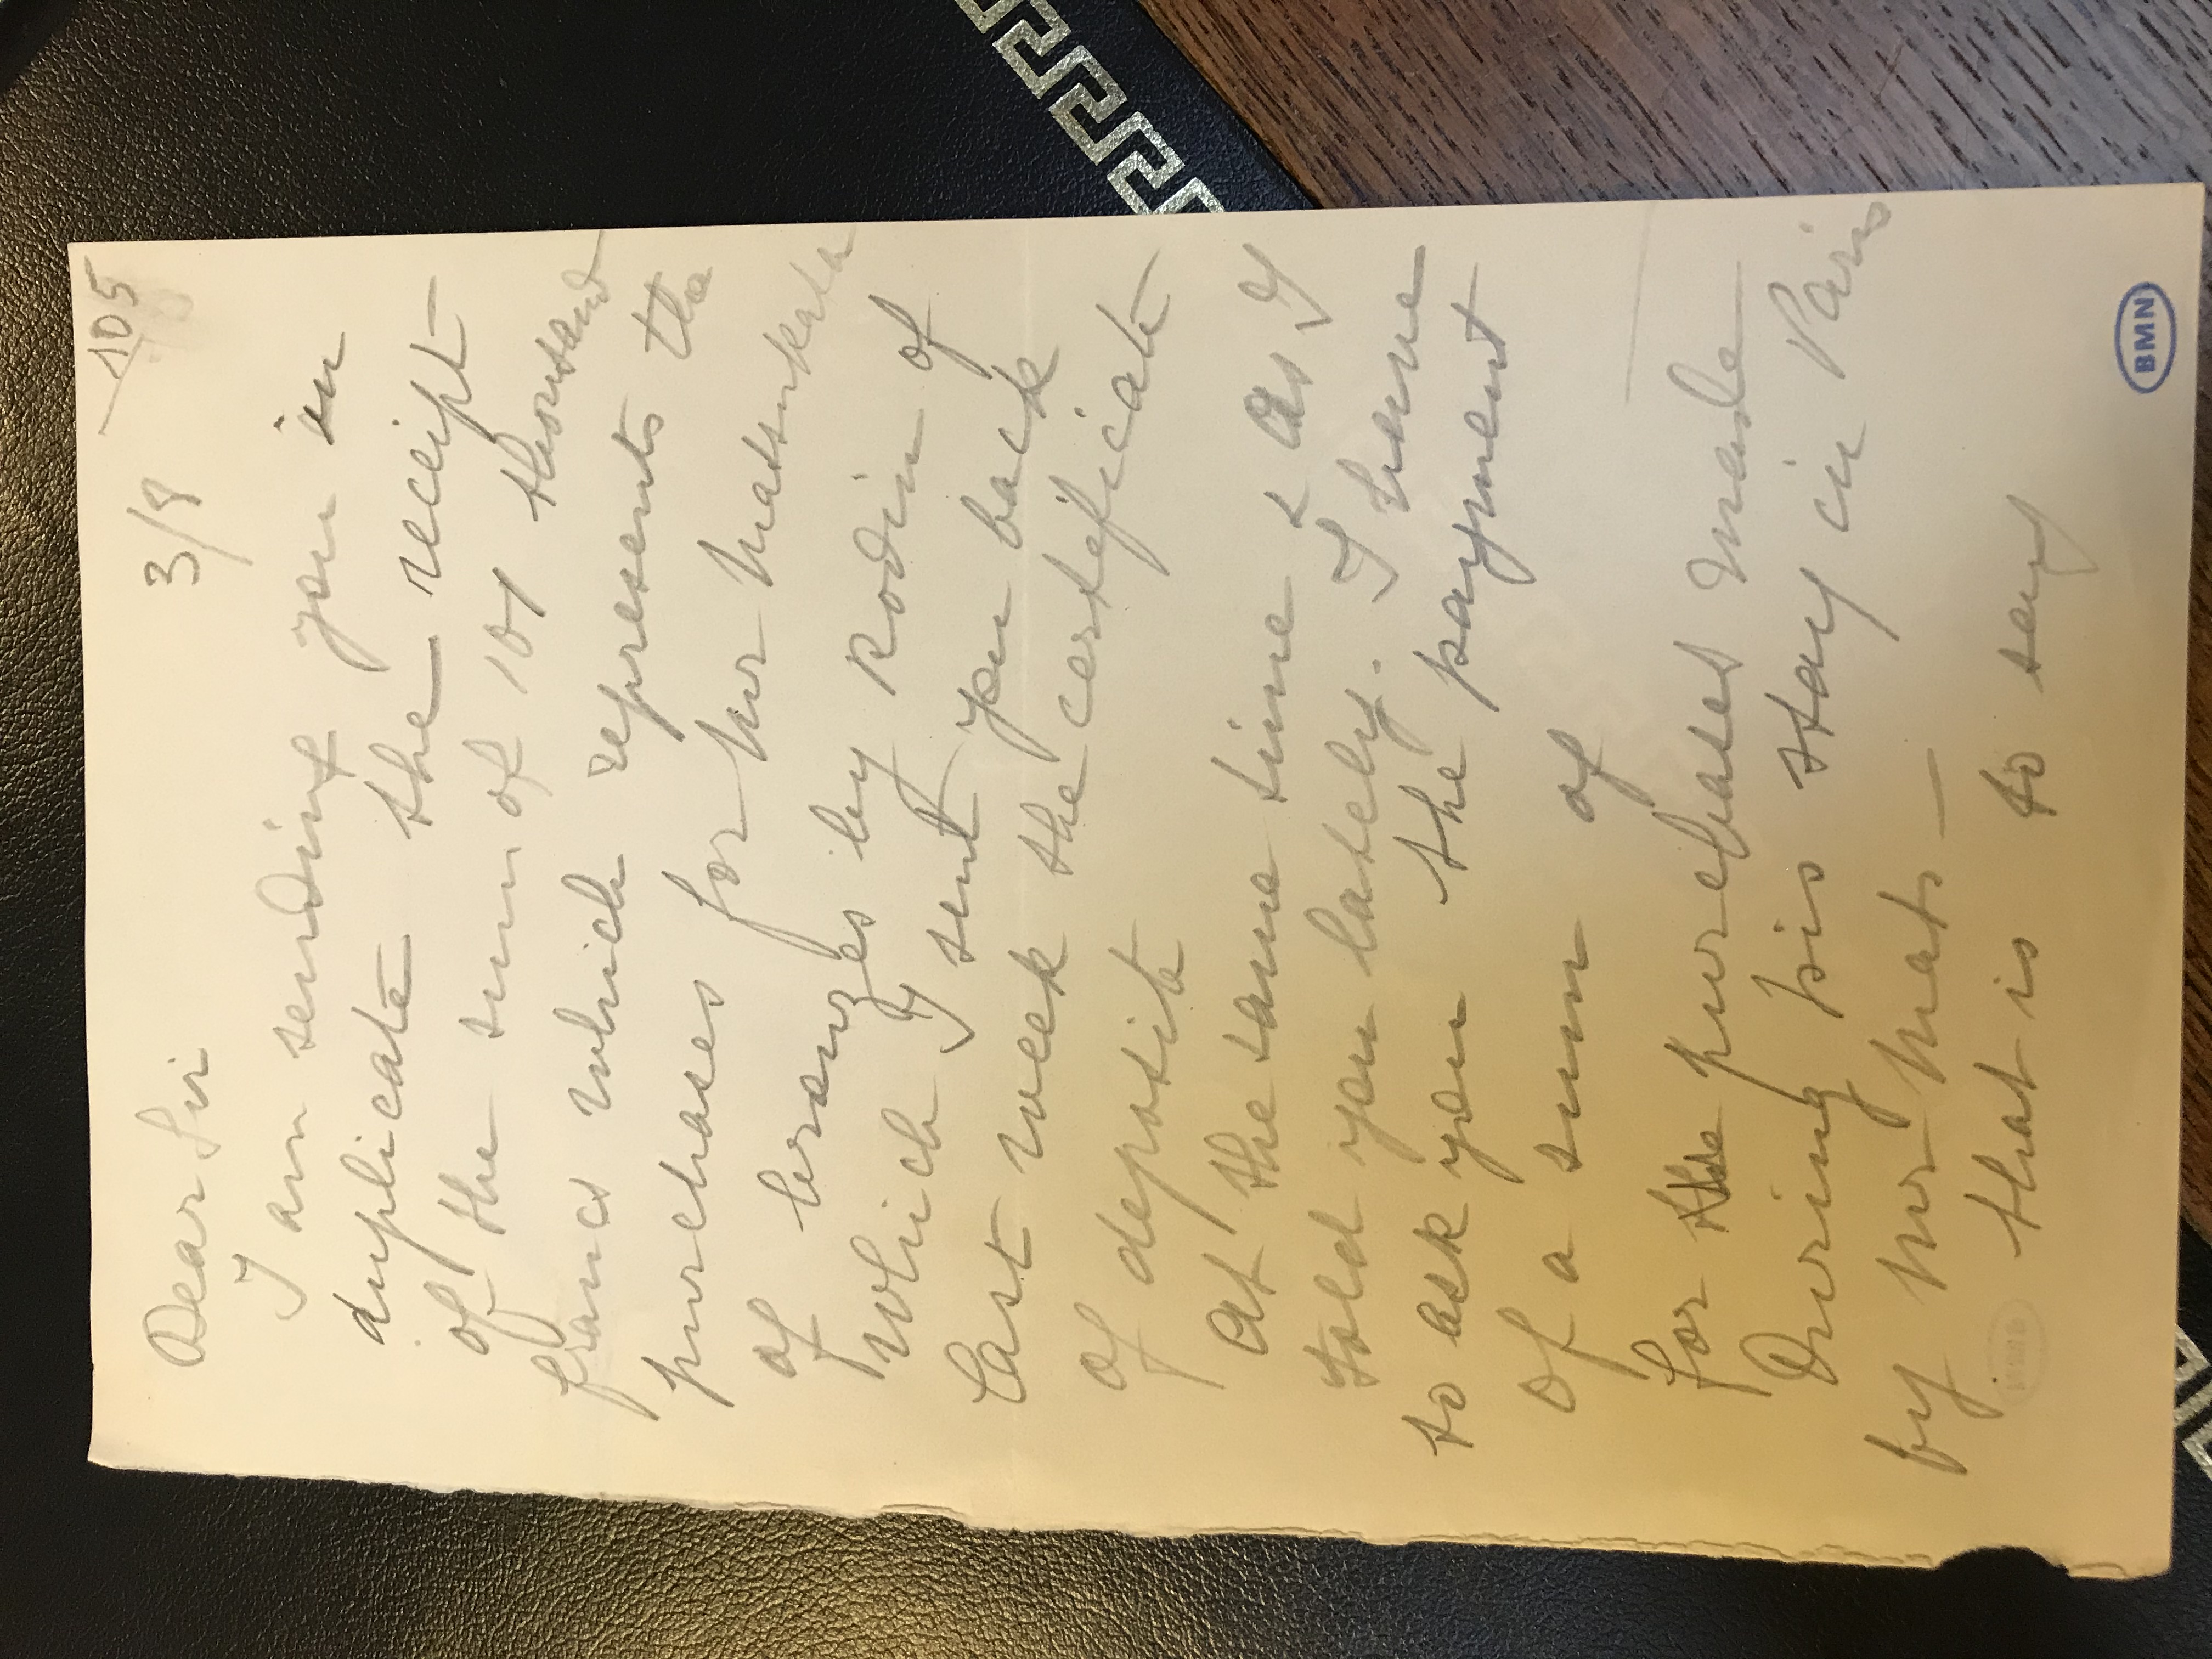 105
3/8
Dear Sir
I am sending you in
duplicate the receipt
of the sum of 101 thousand
francs which represents the
purchases for Mr Matsukata
of bronzes by Rodin of
which I sent you back
last week the certificate
of deposit
At the same time as I
told you lately. I have
to ask you the payment
of a sum of
for the purchases made
During his stay in Paris
by Mr Mats—
that is to say
BMN